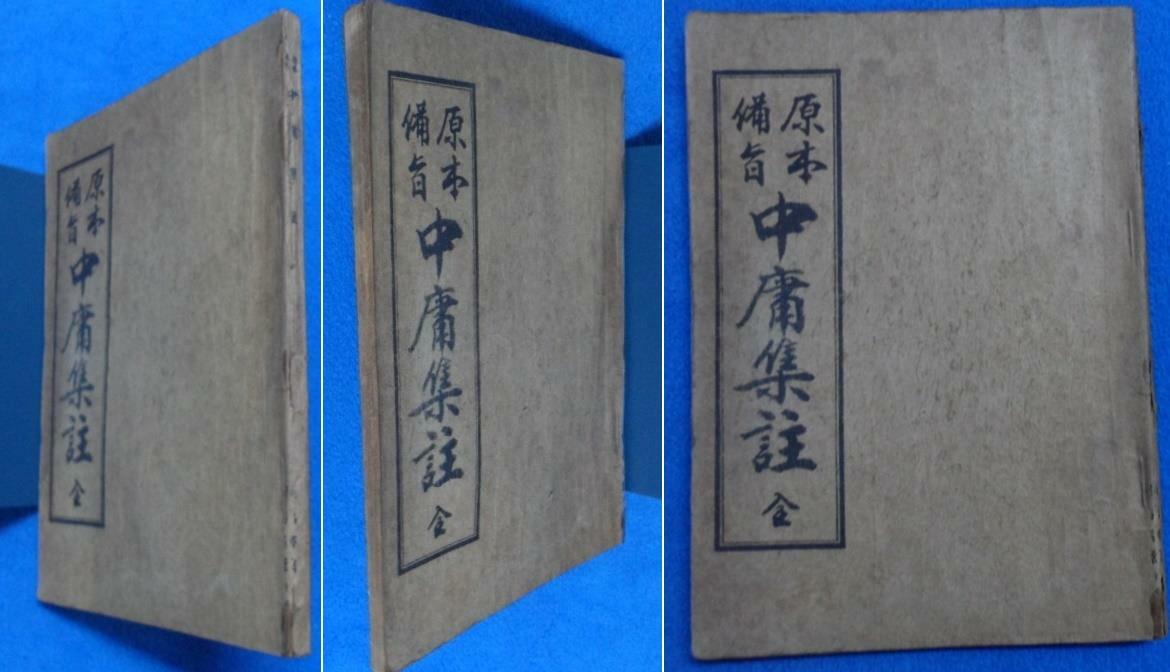 原本
備旨
中庸集註 全
原本
備旨
中庸集註 全
原本
備旨
中庸集註 全